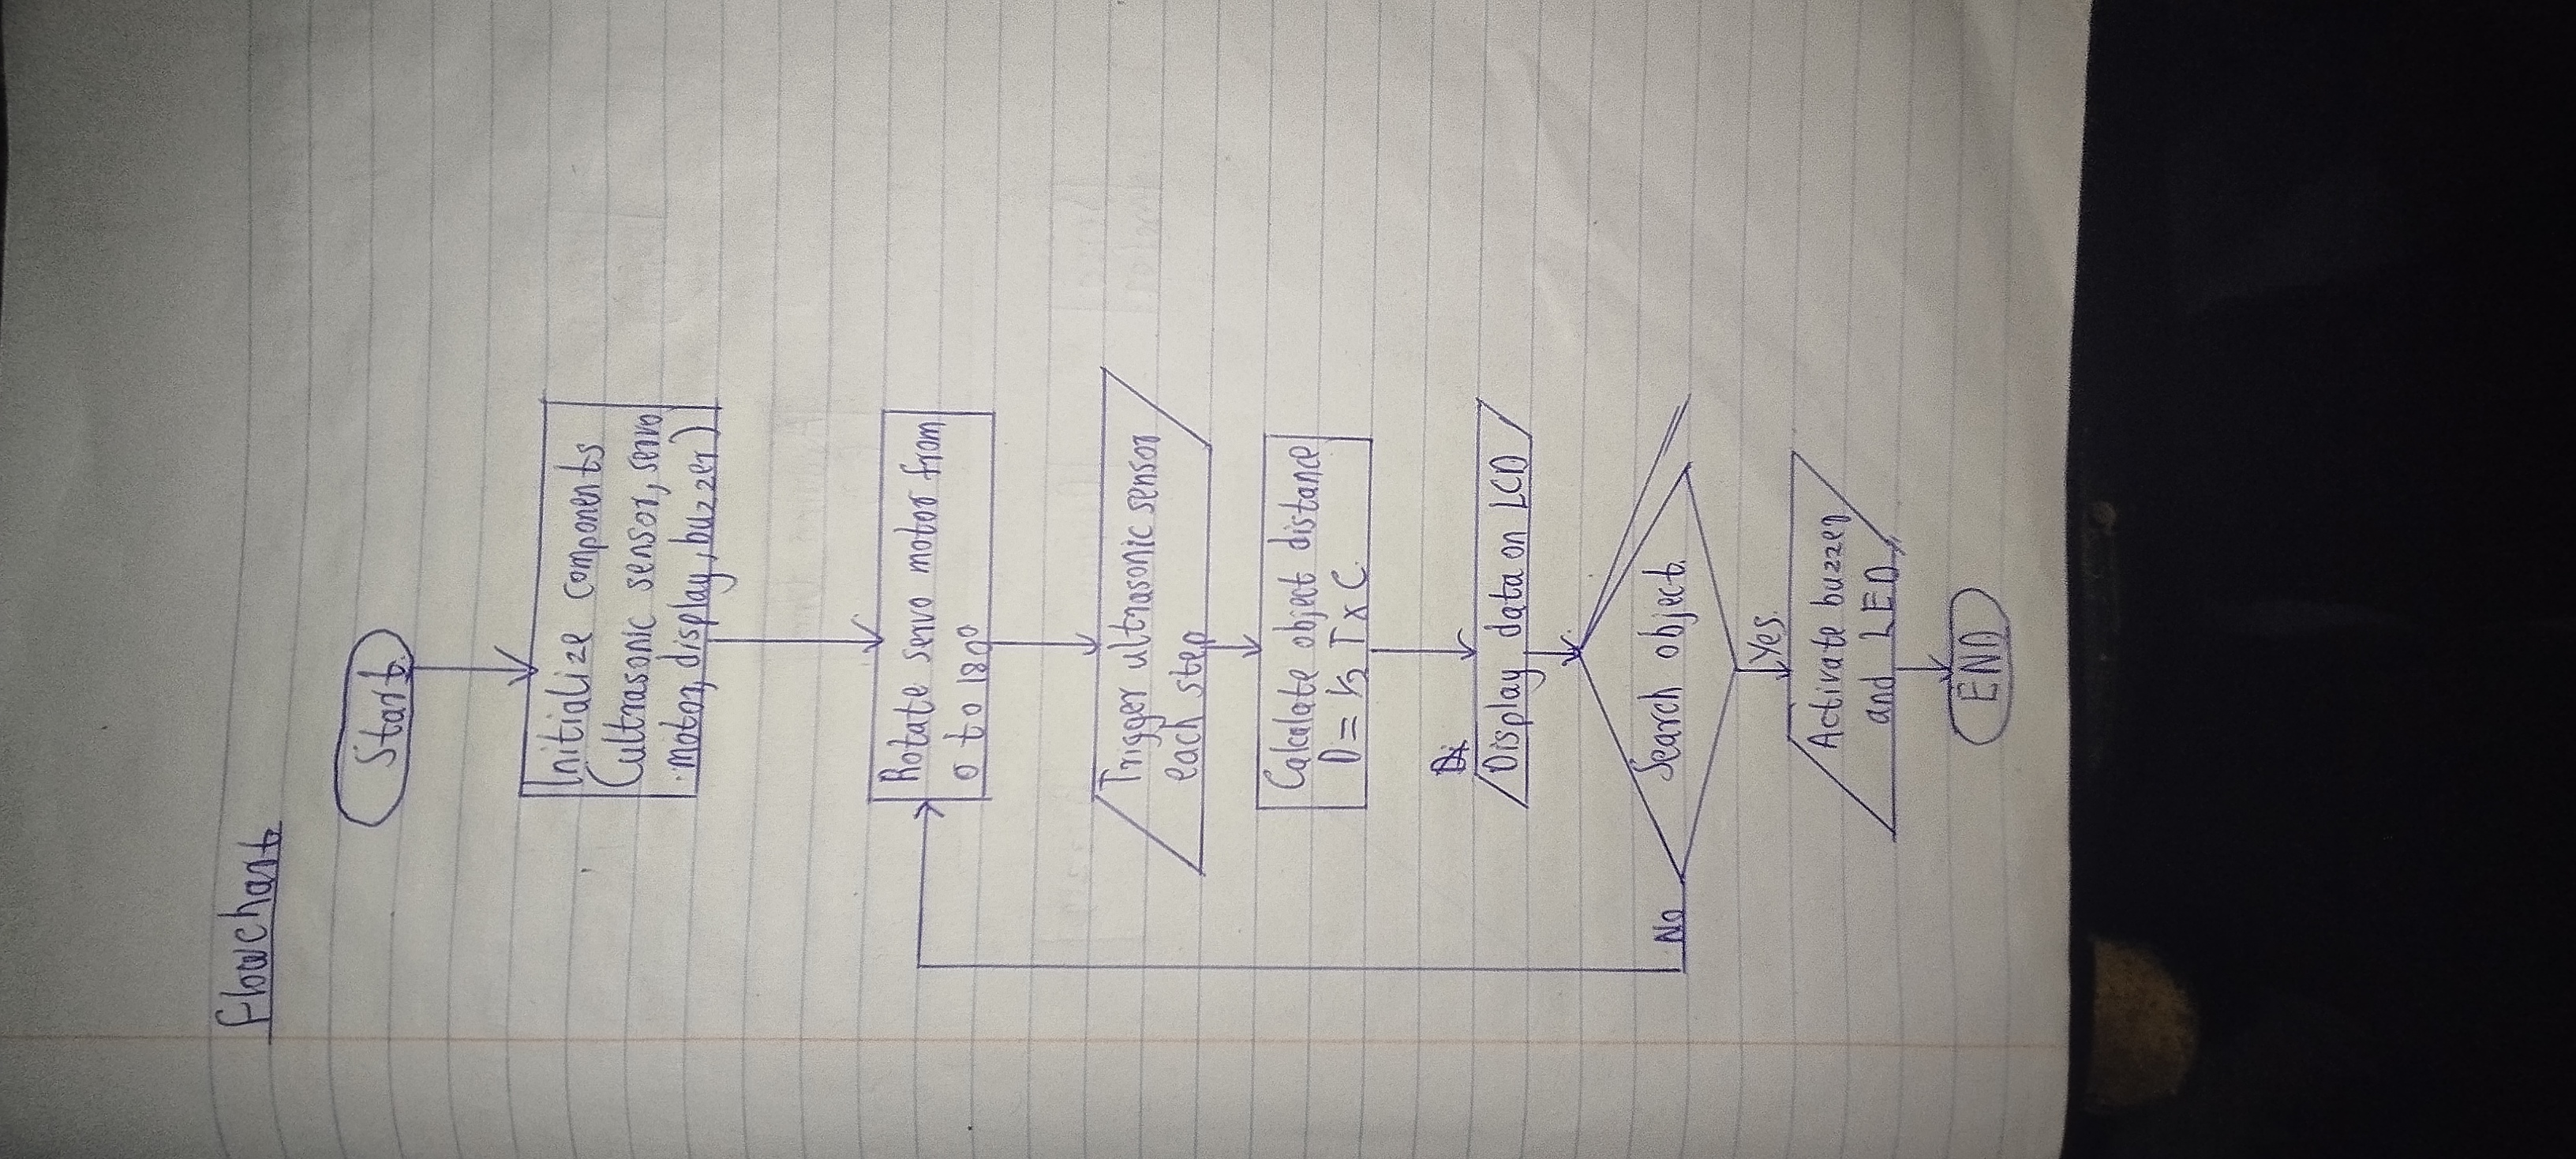 Flowchart
Start
Initialize components
(ultrasonic sensor, servo
motor, display, buzzer)
Rotate servo motor from
0 to 180°
Trigger ultrasonic sensor
each step
Calculate object distance
D = ½ T x C
Display data on LCD
Search object
No
Yes
Activate buzzer
and LED
END